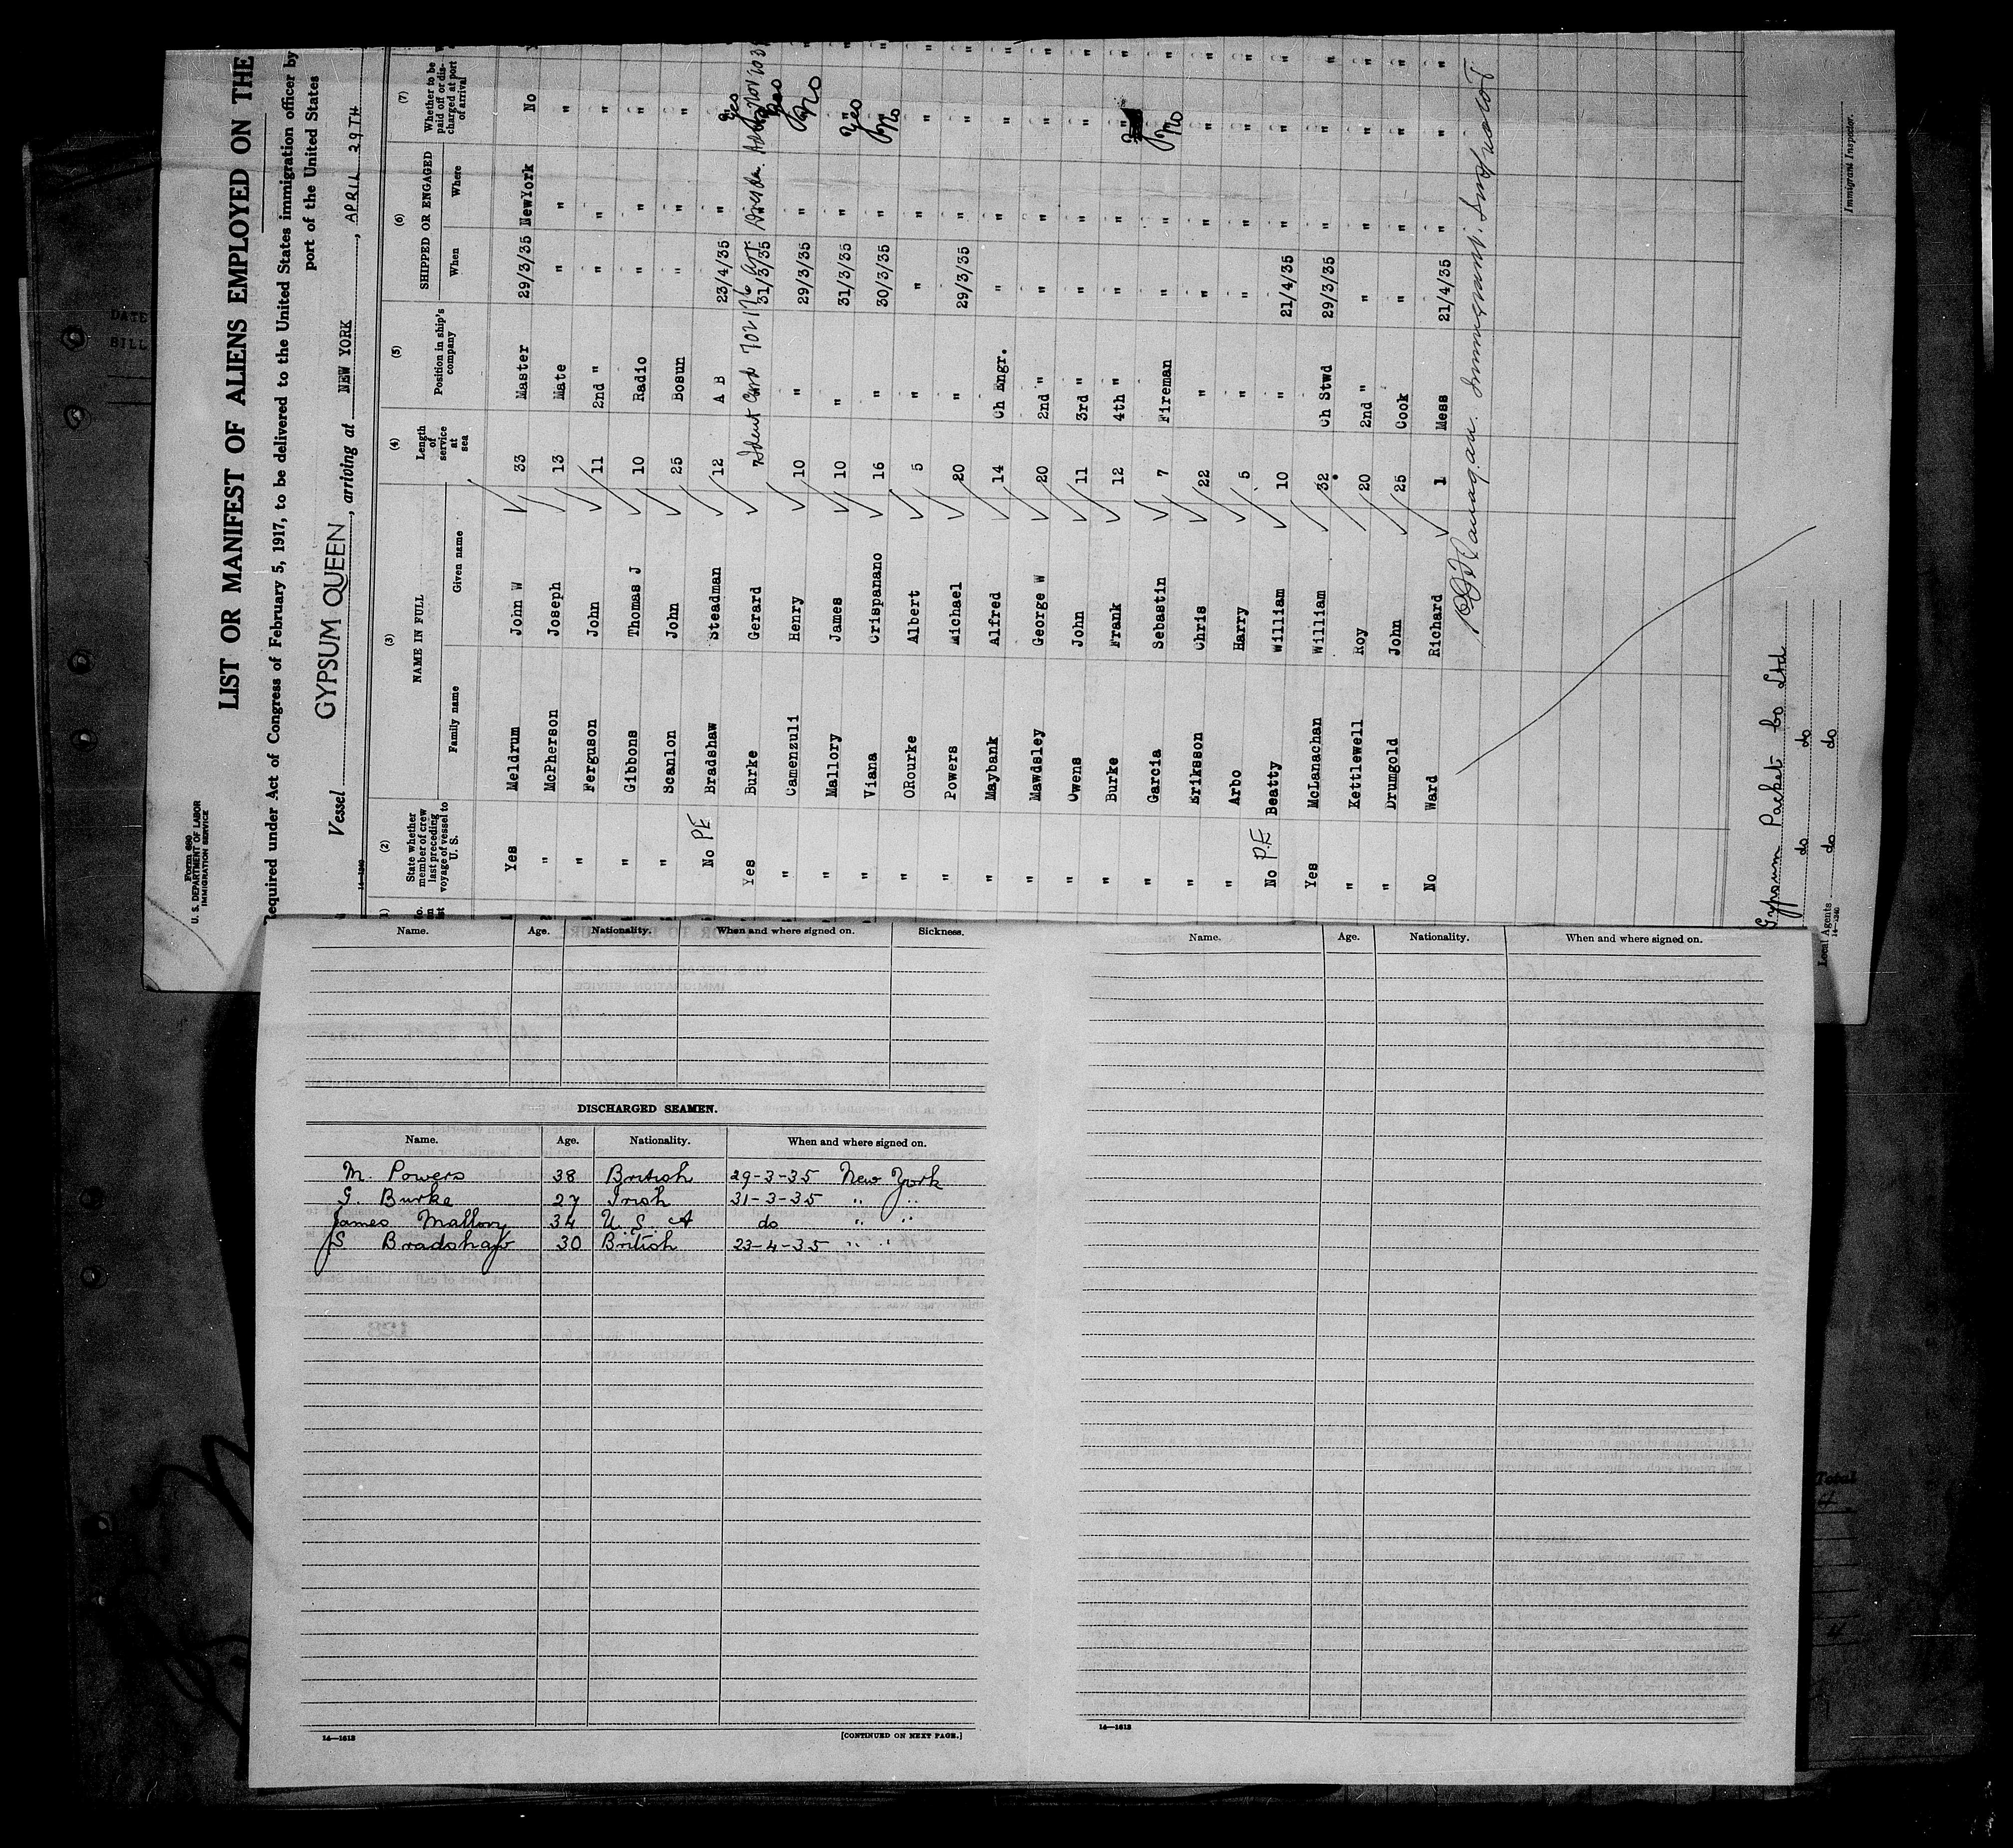 Form 680
U. S. DEPARTMENT OF LABOR
IMMIGRATION SERVICE
LIST OR MANIFEST OF ALIENS EMPLOYED ON THE
Required under Act of Congress of February 5, 1917, to be delivered to the United States immigration officer by
port of the United States
Vessel GYPSUM QUEEN, arriving at NEW YORK, APRIL 29TH
14-1240
(2) (3) (4) (5) (6) (7)
State whether member of crew last preceding voyage of vessel to U. S. NAME IN FULL Family name Given name Length of service at sea Position in ship's company SHIPPED OR ENGAGED When Where Whether to be paid off or discharged at port of arrival
Yes Meldrum John W 33 Master 29/3/35 NewYork No
" McPherson Joseph 13 Mate " " "
" Ferguson John 11 2nd " " " "
" Gibbons Thomas J 10 Radio " " "
" Scanlon John 25 Bosun " " "
No PE Bradshaw Steadman 12 A B 23/4/35 " Yes
Yes Burke Gerard Ident Card 702176 31/3/35 Yes
" Camenzuli Henry 10 " 29/3/35 " No
" Mallory James 10 " 31/3/35 " Yes
" Viana Crispanano 16 " 30/3/35 " No
" ORourke Albert 5 " " " "
" Powers Michael 20 " 29/3/35 " "
" Maybank Alfred 14 Ch Engr. " " "
" Mawdsley George W 20 2nd " " " "
" Owens John 11 3rd " " " "
" Burke Frank 12 4th " " " "
" Garcia Sebastin 7 Fireman " " No
" Eriksson Chris 22 " " " "
" Arbo Harry 5 " " " "
No P.E Beatty William 10 " 21/4/35 " "
Yes McLanachan William 32 Ch Stwd 29/3/35 " "
" Kettlewell Roy 20 2nd " " " "
" Drumgold John 25 Cook " " "
No Ward Richard 1 Mess 21/4/35 " "
Immigrant Inspector
Gypsum Packet Co Ltd
do do
Local Agents do do
14-1240
Immigrant Inspector.
Name. Age. Nationality. When and where signed on. Sickness.
DISCHARGED SEAMEN.
Name. Age. Nationality. When and where signed on.
M. Powers 38 British 29-3-35 New York
G. Burke 27 Irish 31-3-35 " "
James Mallory 34 U. S. A do " "
S Bradshaw 30 British 23-4-35 " "
14—1613
[CONTINUED ON NEXT PAGE.]
Name. Age. Nationality. When and where signed on.
14—1613
Total